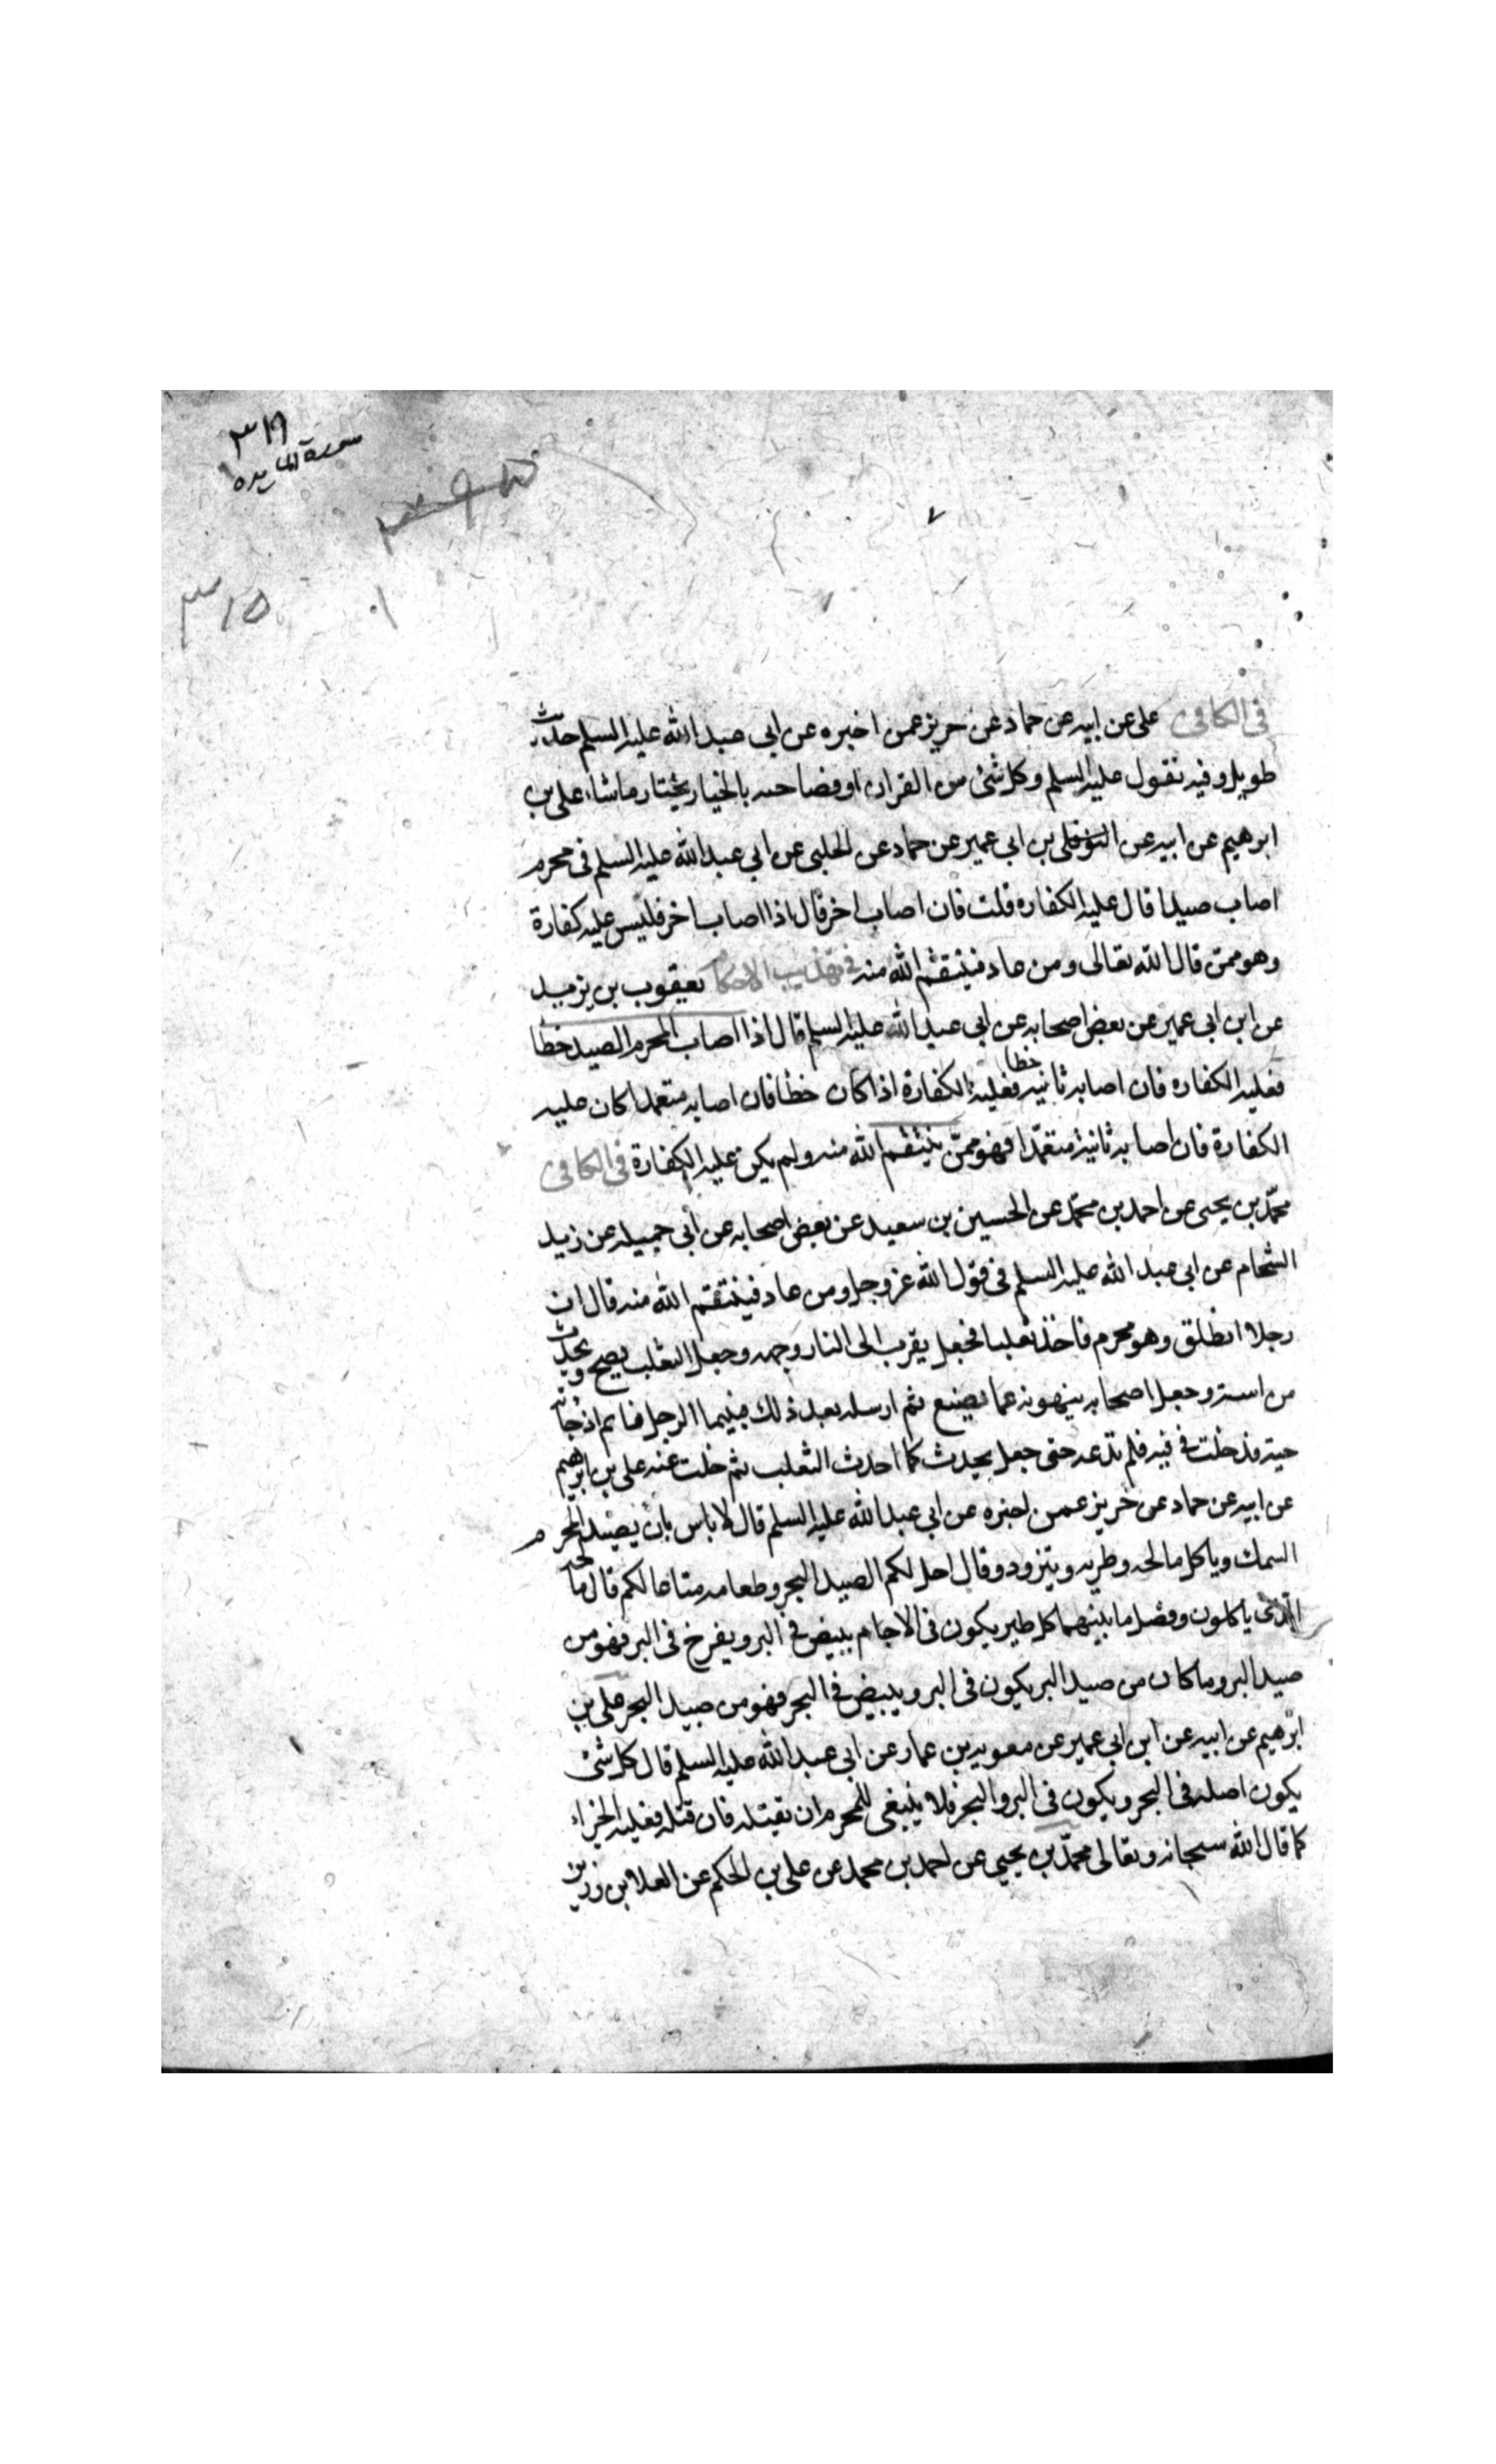 ٣١٩
سورة المائده
٣١٥
٧
فى الكافى على عن ابيه عن حماد عن حريز عمن اخبره عن ابى عبد الله عليه السلم حديث
طويل وفيه نقول عليه السلم وكل شئ من القران او فصاحبه بالخيار يختار ما شاء على بن
ابرهيم عن ابيه عن النوفلى بن ابى عمير عن حماد عن الحلبى عن ابى عبد الله عليه السلم فى محرم
اصاب صيدا قال عليه الكفاره قلت فان اصاب اخر قال اذا اصاب اخر فليس عليه كفارة
وهو ممن قال الله تعالى ومن عاد فينتقم الله منه فى تهذيب الاحكام يعقوب بن يزيد
عن ابن ابى عمير عن بعض اصحابه عن ابى عبد الله عليه السلم قال اذا اصاب المحرم الصيد خطا
فعليه الكفاره فان اصابه ثانية خطا فعليه الكفارة اذا كان خطا فان اصابه متعمدا كان عليه
الكفارة فان اصابه ثانية متعمّدا فهو ممّن ينتقم الله منه ولم يكن عليه الكفارة فى الكافى
محمّد بن يحيى عن احمد بن محمّد عن الحسين بن سعيد عن بعض اصحابه عن ابى جميله عن زيد
الشحام عن ابى عبد الله عليه السلم فى قول الله عز وجل ومن عاد فينتقم الله منه قال ان
رجلا انطلق وهو محرم فاخذ ثعلبا فجعل يقرب الى النار وجهه وجعل الثعلب يصيح ويحدث
من استه وجعل اصحابه ينهونه عما يصنع ثم ارسله بعد ذلك فبينما الرجل نائم اذ جاته
حية فدخلت فى فيه فلم تدعه حتى جعل يحدث كما احدث الثعلب ثم خلت عنه على بن ابرهيم
عن ابيه عن حماد عن حريز عمن اخبره عن ابى عبد الله عليه السلم قال لا باس بان يصيد المحرم
السمك وياكل مالحه وطريه ويتزود وقال احل لكم الصيد البحر وطعامه متاعا لكم قال مالحه
الذى ياكلون وفصل ما بينهما كل طير يكون فى الاجام يبيض فى البر ويفرخ فى البر فهو من
صيد البر وما كان من صيد البر يكون فى البر ويبيض فى البحر فهو من صيد البحر على بن
ابرهيم عن ابيه عن ابن ابى عمير عن معوية بن عمار عن ابى عبد الله عليه السلم قال كل شئ
يكون اصله فى البحر ويكون فى البر والبحر فلا ينبغى للمحرم ان يقتله فان قتله فعليه الجزاء
كما قال الله سبحانه وتعالى محمّد بن يحيى عن احمد بن محمد عن على بن الحكم عن العلا بن رزين